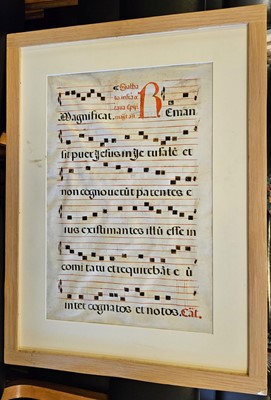 Magnificat. Reman
sit puer Jesus in Jerusalē et
non cognouerūt parentes e
ius existimantes illū esse in
comitatu et requirebāt eū
inter cognatos et notos. Cāt.